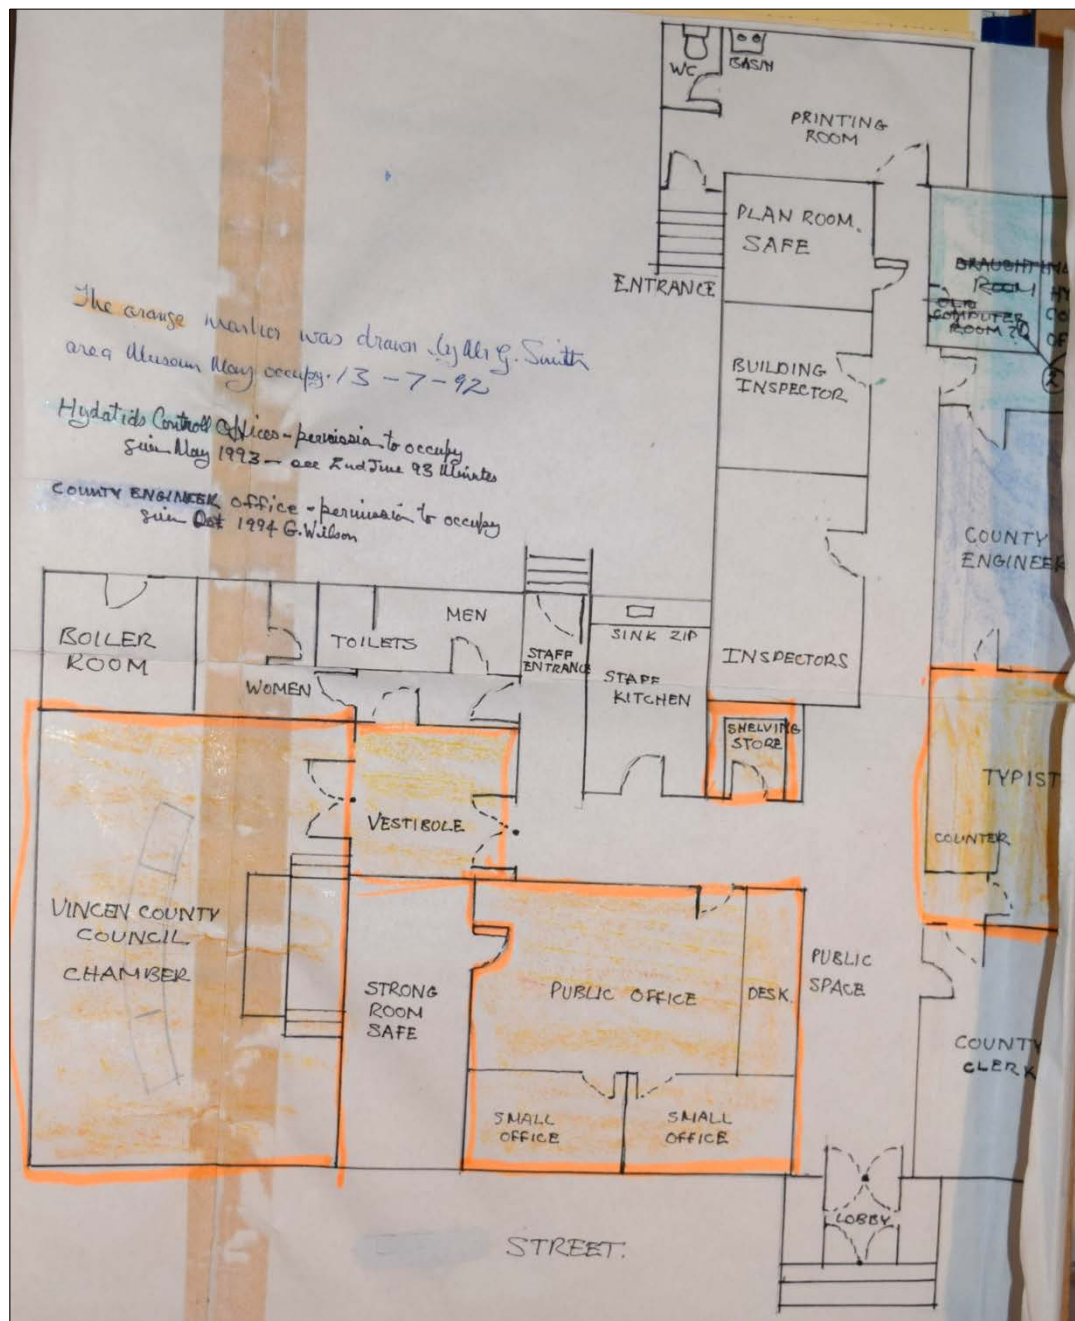 WC
BASIN
PRINTING
ROOM
PLAN ROOM.
SAFE
ENTRANCE
DRAUGHTING
ROOM
OLD
COMPUTER
ROOM?
HY
CO
OF
2
The orange marker was drawn by Mr G. Smith
area Museum May occupy. 13-7-92
BUILDING
INSPECTOR
Hydatids Controll Offices - permission to occupy
given May 1993 - see 2nd June 93 Minutes
COUNTY ENGINEER office - permission to occupy
given Oct 1994 G. Wilson
COUNTY
ENGINEER
BOILER
ROOM
TOILETS
MEN
WOMEN
STAFF
ENTRANCE
SINK ZIP
STAFF
KITCHEN
INSPECTORS
SHELVING
STORE
TYPIST
COUNTER
VESTIBOLE
VINCEN COUNTY
COUNCIL
CHAMBER
STRONG
ROOM
SAFE
PUBLIC OFFICE
DESK.
PUBLIC
SPACE
COUNTY
CLERK
SMALL
OFFICE
SMALL
OFFICE
LOBBY
STREET.